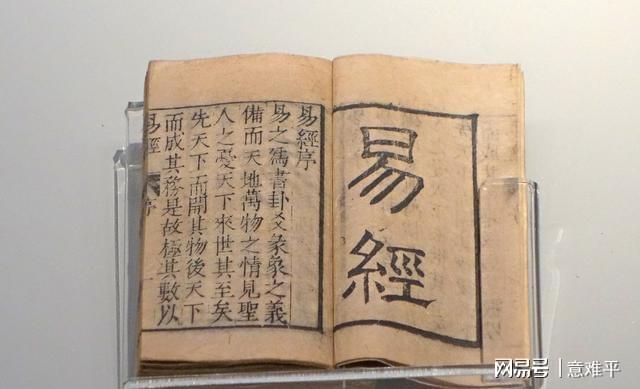 易經
易經序
易之爲書卦爻彖象之義
備而天地萬物之情見聖
人之憂天下來世其至矣
先天下而開其物後天下
而成其務是故極其數以
易經 序
网易号 | 意难平